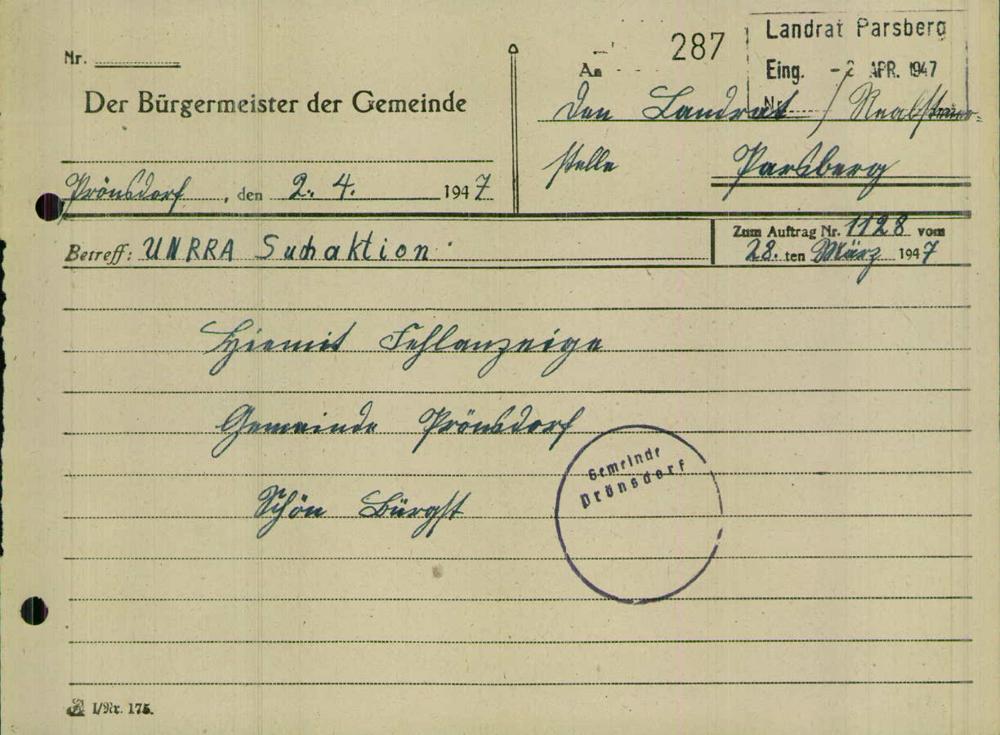 Nr.
Der Bürgermeister der Gemeinde
Prönsdorf, den 2. 4. 1947
287
Landrat Parsberg
Eing. - 2. APR. 1947
Nr.
An
den Landrat /
stelle Parsberg
Betreff: UNRRA Suchaktion
Zum Auftrag Nr. 1128 vom
28. ten März 1947
Hiemit Fehlanzeige
Gemeinde Prönsdorf
Schön Bürgst
Gemeinde
Prönsdorf
I/Nr. 175.